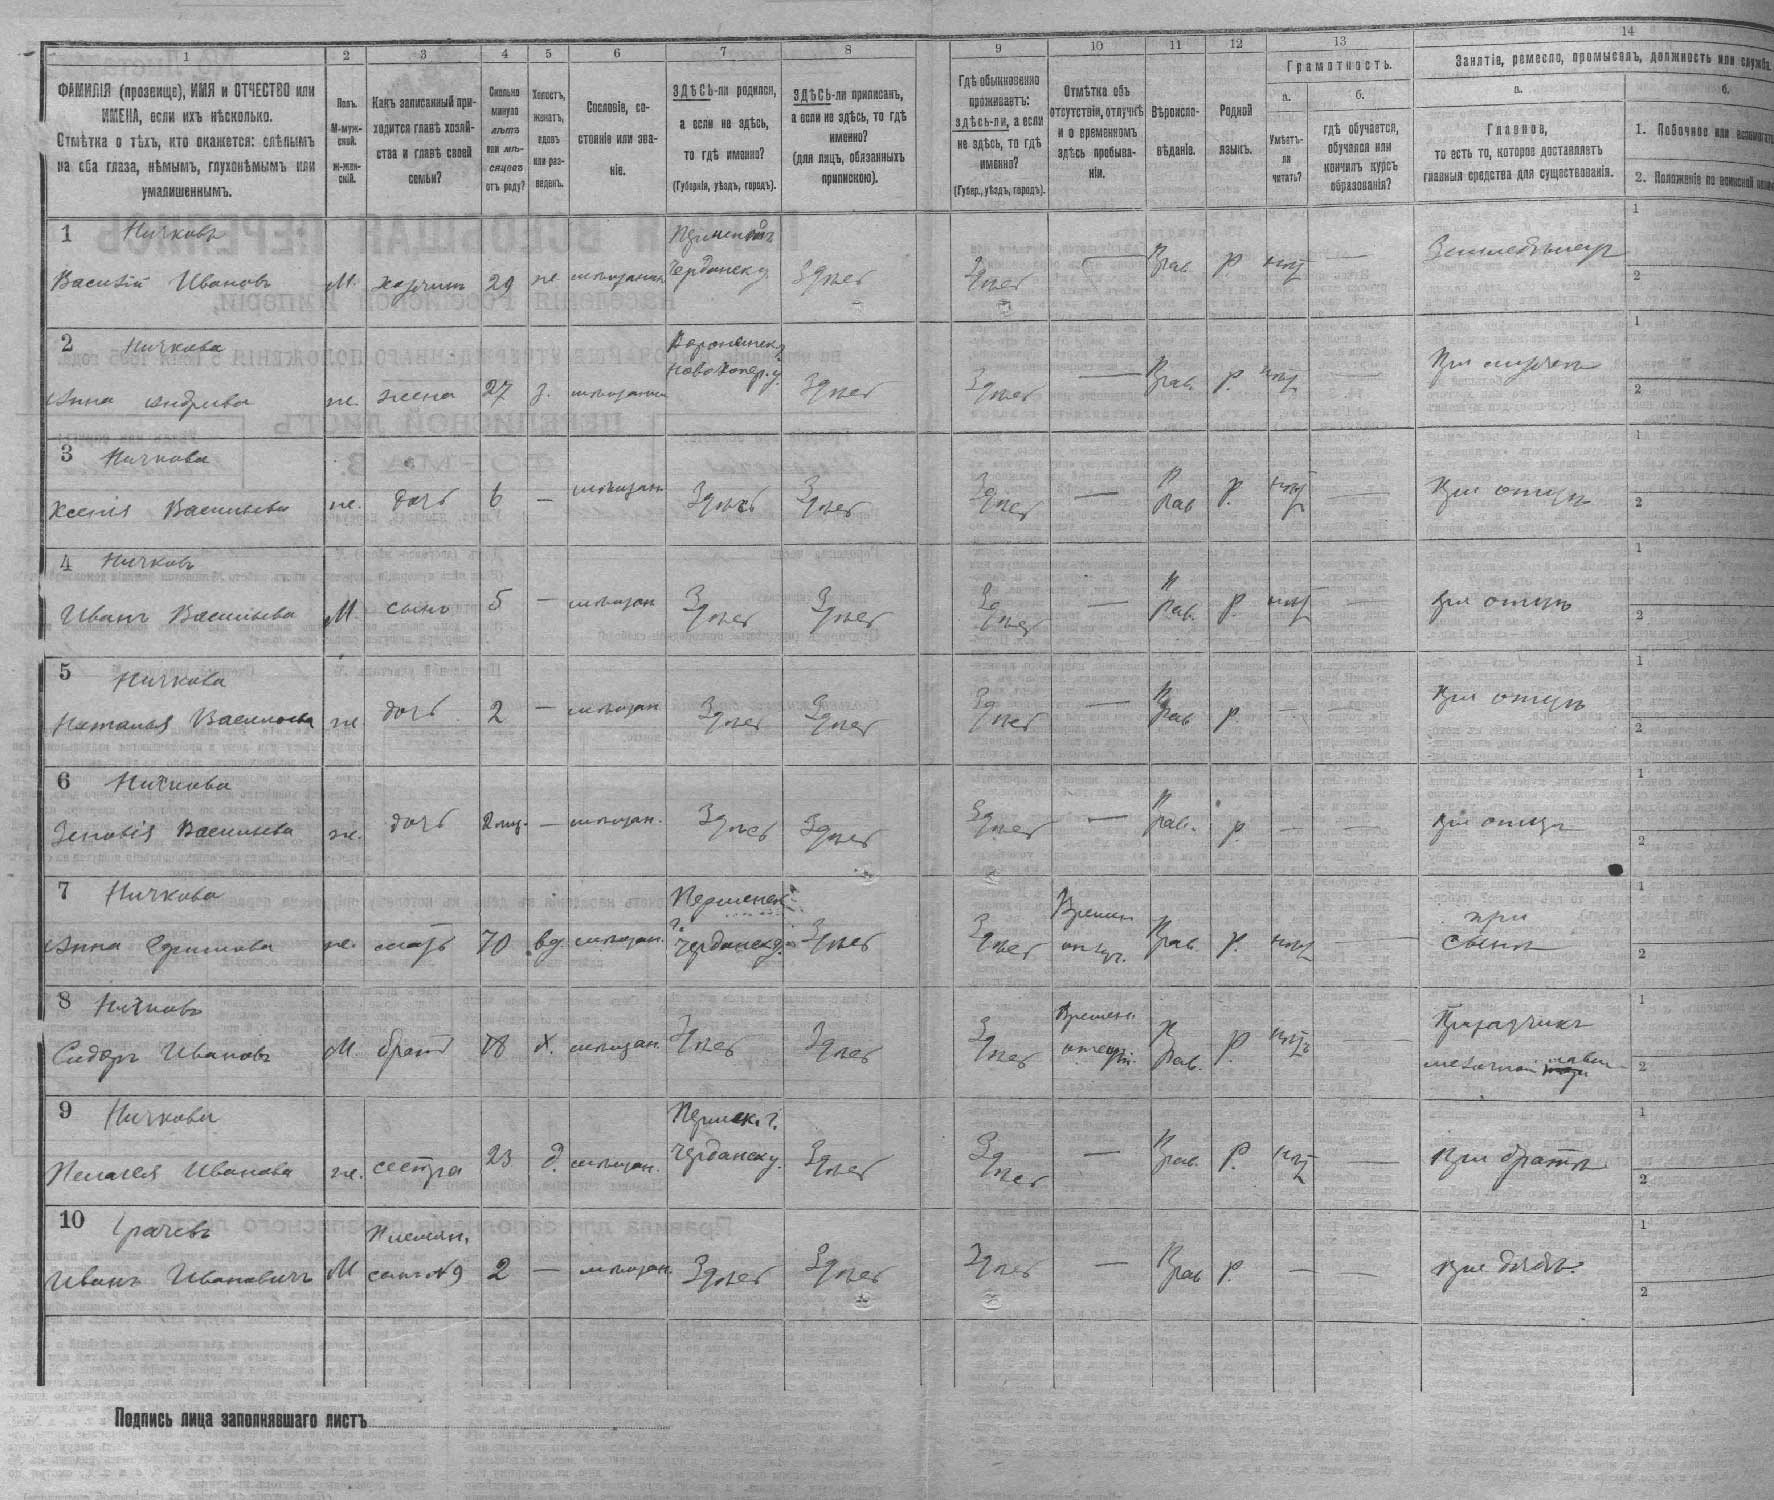 1
2
3
4
5
6
7
8
9
10
11
12
13
14
ФАМИЛІЯ (прозвище), ИМЯ и ОТЧЕСТВО или
ИМЕНА, если ихъ нѣсколько.
Отмѣтка о тѣхъ, кто окажется: слѣпымъ
на оба глаза, нѣмымъ, глухонѣмымъ или
умалишеннымъ.
Полъ.
М-муж-
ской.
ж-жен-
скій.
Какъ записанный при-
ходится главѣ хозяй-
ства и главѣ своей
семьи?
Сколько
минуло
лѣтъ
или мѣ-
сяцевъ
отъ роду?
Холостъ,
женатъ,
вдовъ
или раз-
веденъ.
Сословіе, со-
стояніе или зва-
ніе.
ЗДѢСЬ-ли родился,
а если не здѣсь,
то гдѣ именно?
(Губернія, уѣздъ, городъ).
ЗДѢСЬ-ли приписанъ,
а если не здѣсь, то гдѣ
именно?
(для лицъ, обязанныхъ
припискою).
Гдѣ обыкновенно
проживаетъ:
здѣсь-ли, а если
не здѣсь, то гдѣ
именно?
(Губер., уѣздъ, городъ).
Отмѣтка объ
отсутствіи, отлучкѣ
и о временномъ
здѣсь пребыва-
ніи.
Вѣроиспо-
вѣданіе.
Родной
языкъ.
Грамотность.
а.
Умѣетъ-
ли
читать?
б.
гдѣ обучается,
обучался или
кончилъ курсъ
образованія?
Занятіе, ремесло, промыселъ, должность или служба.
а.
Главное,
то есть то, которое доставляетъ
главныя средства для существованія.
б.
1. Побочное или
2. Положеніе по воинской
1 Ничковъ
Василій Ивановъ М. хозяинъ 29 же мѣщанин Чердынск у. Здѣсь Здѣсь — Прав. р. нѣт — Земледѣлецъ 1 2
2 Ничкова
Анна Андрѣева же. жена 27 з. Воронежск Новохопер. у. Здѣсь Здѣсь — Прав. р. нѣт — При мужѣ 1 2
3 Ничкова
Ксенія Васильева же. дочь 6 — мѣщан Здѣсь Здѣсь Здѣсь — Прав р. нѣт — при отцѣ 1 2
4 Ничковъ
Иванъ Васильева М. сынъ 5 — мѣщан Здѣсь Здѣсь Здѣсь — Прав. р. нѣт — при отцѣ 1 2
5 Ничкова
Наталья Васильева же дочь 2 — мѣщан Здѣсь Здѣсь Здѣсь — Прав р. — — при отцѣ 1 2
6 Ничкова
Зеновія Васильева же. дочь — мѣщан. Здѣсь Здѣсь Здѣсь — Прав. р. — — при отцѣ 1 2
7 Ничкова
Анна Ефимова же. мать 70 вд мѣщан. Пермской г. Чердынск у. Здѣсь Здѣсь Времен. отлуч. Прав. р. нѣт — при сынѣ 1 2
8 Ничковъ
Сидоръ Ивановъ М. братъ 18 х. мѣщан. Здѣсь Здѣсь Здѣсь Времен. Прав. р. нѣтъ — Приказчикъ мелочной лавки 1 2
9 Ничкова
Пелагея Ивановна же. сестра 23 д. мѣщан. Пермск. г. Чердынск у. Здѣсь Здѣсь — Прав. р. нѣт — при братѣ 1 2
10 Грачевъ
Иванъ Ивановичъ М Племян. сынъ №9 2 — мѣщан. Здѣсь Здѣсь Здѣсь — Прав р. — — при дядѣ. 1 2
Подпись лица заполнявшаго листъ